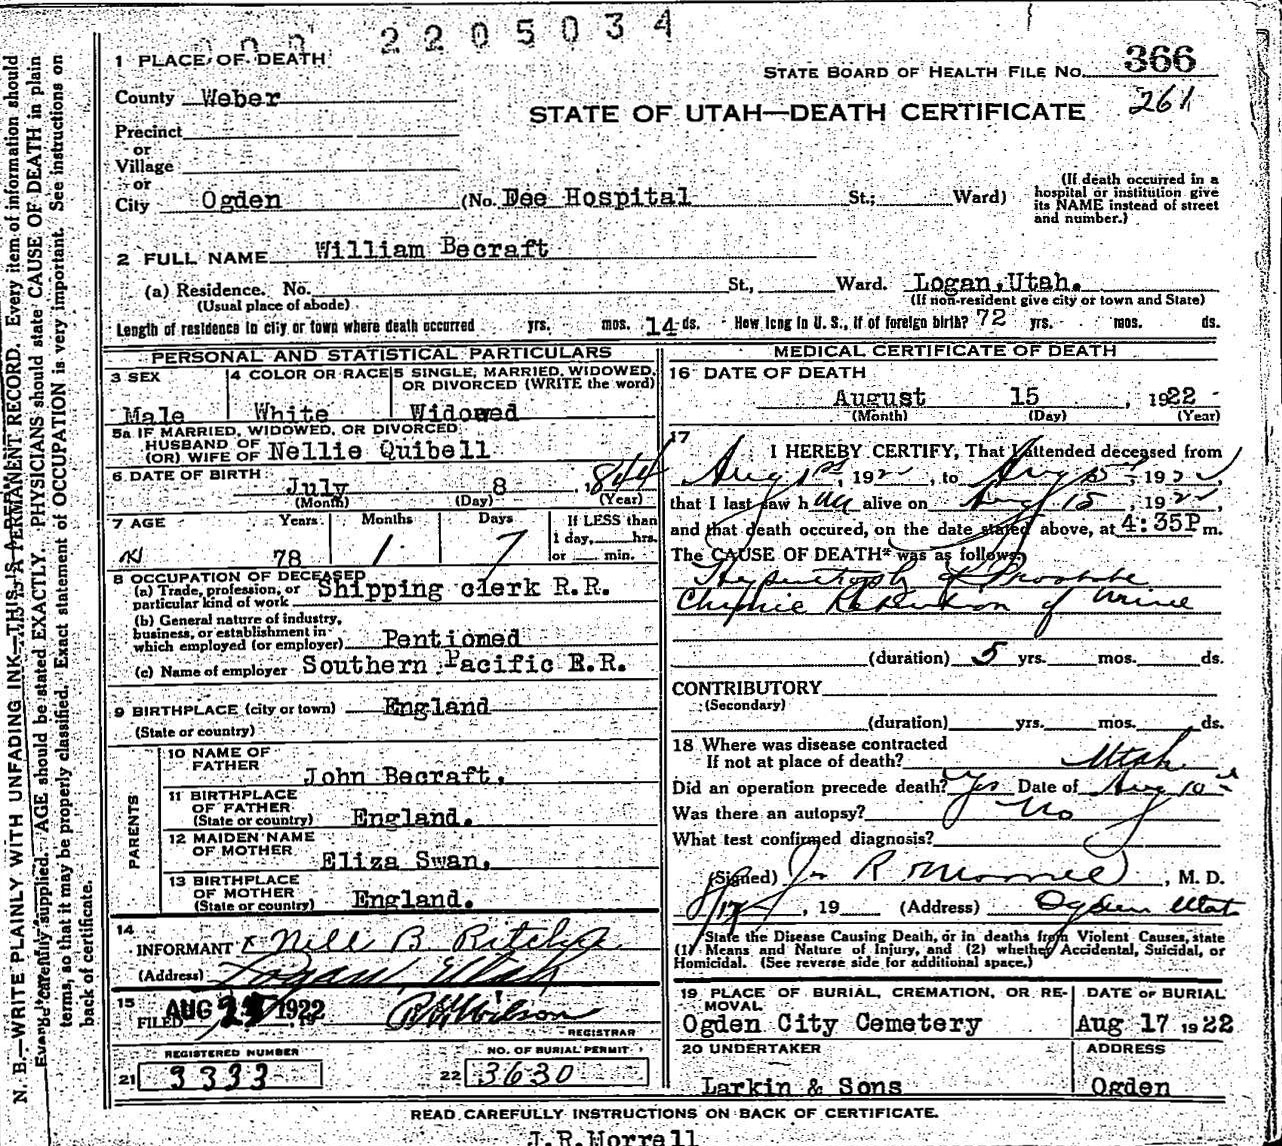 2205034
1 PLACE OF DEATH
STATE BOARD OF HEALTH FILE NO. 366
261
County Weber
STATE OF UTAH—DEATH CERTIFICATE
Precinct
or
Village
or
City Ogden (No. Dee Hospital St.; Ward)
(If death occurred in a hospital or institution give its NAME instead of street and number.)
2 FULL NAME William Becraft
(a) Residence. No. St., Ward. Logan, Utah.
(Usual place of abode) (If non-resident give city or town and State)
Length of residence in city or town where death occurred yrs. mos. 14 ds. How long in U. S., if of foreign birth? 72 yrs. mos. ds.
PERSONAL AND STATISTICAL PARTICULARS
3 SEX
Male
4 COLOR OR RACE
White
5 SINGLE, MARRIED, WIDOWED, OR DIVORCED (WRITE the word)
Widowed
5a IF MARRIED, WIDOWED, OR DIVORCED
HUSBAND OF
(OR) WIFE OF Nellie Quibell
6 DATE OF BIRTH
July 8, 1844
(Month) (Day) (Year)
7 AGE Years Months Days If LESS than
1 day, hrs.
or min.
78 1 7
8 OCCUPATION OF DECEASED
(a) Trade, profession, or particular kind of work Shipping clerk R.R.
(b) General nature of industry, business, or establishment in which employed (or employer) Pentioned
(c) Name of employer Southern Pacific R.R.
9 BIRTHPLACE (city or town) England
(State or country)
PARENTS
10 NAME OF FATHER John Becraft.
11 BIRTHPLACE OF FATHER
(State or country) England.
12 MAIDEN NAME OF MOTHER Eliza Swan.
13 BIRTHPLACE OF MOTHER
(State or country) England.
14
INFORMANT x Nell B Ritchie
(Address) Logan, Utah
15
FILED AUG 1922
REGISTRAR
REGISTERED NUMBER
21 3333
NO. OF BURIAL PERMIT
22 3630
MEDICAL CERTIFICATE OF DEATH
16 DATE OF DEATH
August 15, 1922
(Month) (Day) (Year)
17
I HEREBY CERTIFY, That I attended deceased from
Aug 1st, 1922, to Aug 15, 1922,
that I last saw him alive on Aug 15, 1922,
and that death occured, on the date stated above, at 4:35P m.
The CAUSE OF DEATH* was as follows:
Hypertrophy of Prostate
Chronic Retention of Urine
(duration) 5 yrs. mos. ds.
CONTRIBUTORY
(Secondary)
(duration) yrs. mos. ds.
18 Where was disease contracted
If not at place of death? Utah
Did an operation precede death? Yes Date of Aug 10
Was there an autopsy? No
What test confirmed diagnosis?
(Signed) J. R Morrell, M. D.
8/17, 19 (Address) Ogden Utah
*State the Disease Causing Death, or in deaths from Violent Causes, state
(1) Means and Nature of Injury, and (2) whether Accidental, Suicidal, or
Homicidal. (See reverse side for additional space.)
19 PLACE OF BURIAL, CREMATION, OR REMOVAL
Ogden City Cemetery
DATE OF BURIAL
Aug 17 1922
20 UNDERTAKER
Larkin & Sons
ADDRESS
Ogden
READ CAREFULLY INSTRUCTIONS ON BACK OF CERTIFICATE.
J.R.Morrell
N. B.—WRITE PLAINLY WITH UNFADING INK—THIS IS A PERMANENT RECORD. Every item of information should
be carefully supplied. AGE should be stated EXACTLY. PHYSICIANS should state CAUSE OF DEATH in plain
terms, so that it may be properly classified. Exact statement of OCCUPATION is very important. See instructions on
back of certificate.